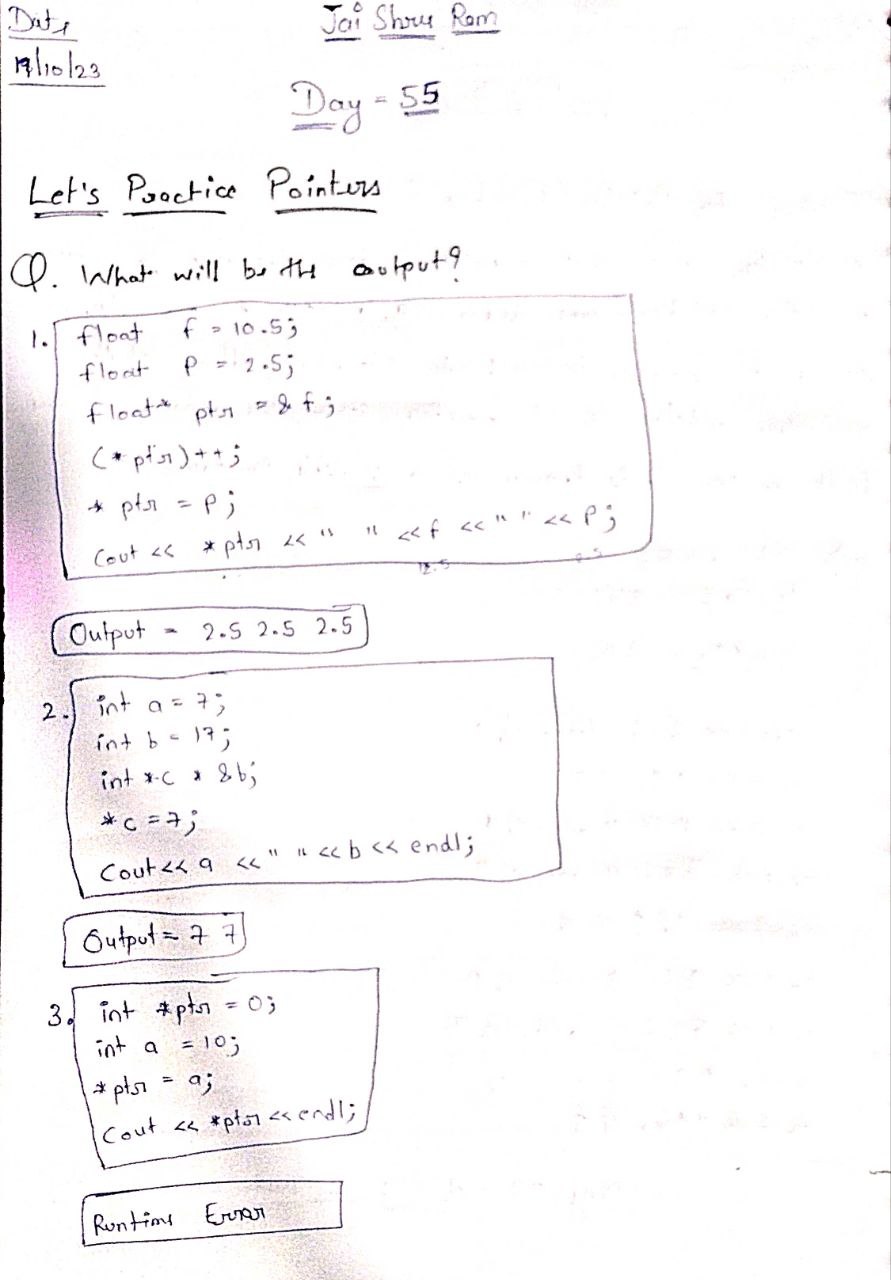 Date
Jai Shree Ram
19/10/23
Day - 55
Let's Practice Pointers
Q. What will be the output?
1. float f = 10.5;
float p = 2.5;
float* ptr = & f;
(* ptr)++;
* ptr = p;
Cout << *ptr << " " << f << " " << p;
12.5
Output = 2.5 2.5 2.5
2. int a = 7;
int b = 17;
int *c = &b;
*c = 7;
Cout << a << " " << b << endl;
Output = 7 7
3. int *ptr = 0;
int a = 10;
*ptr = a;
Cout << *ptr << endl;
Runtime Error